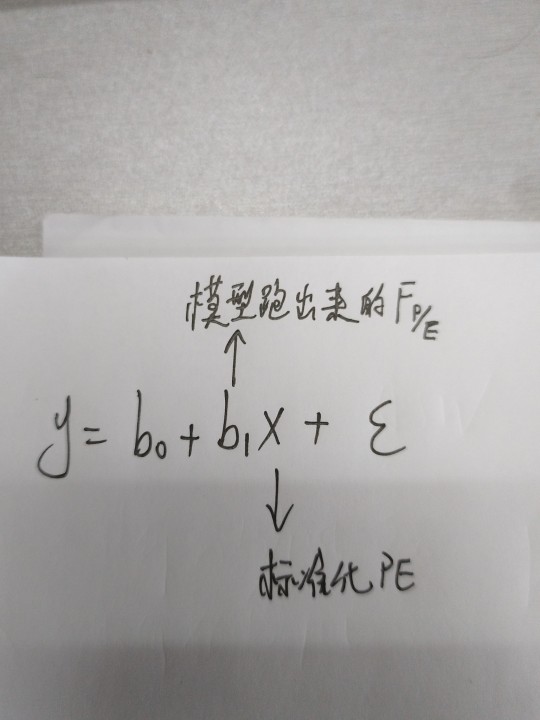 模型跑出来的 F_{P/E}
y = b₀ + b₁x + ε
标准化 PE